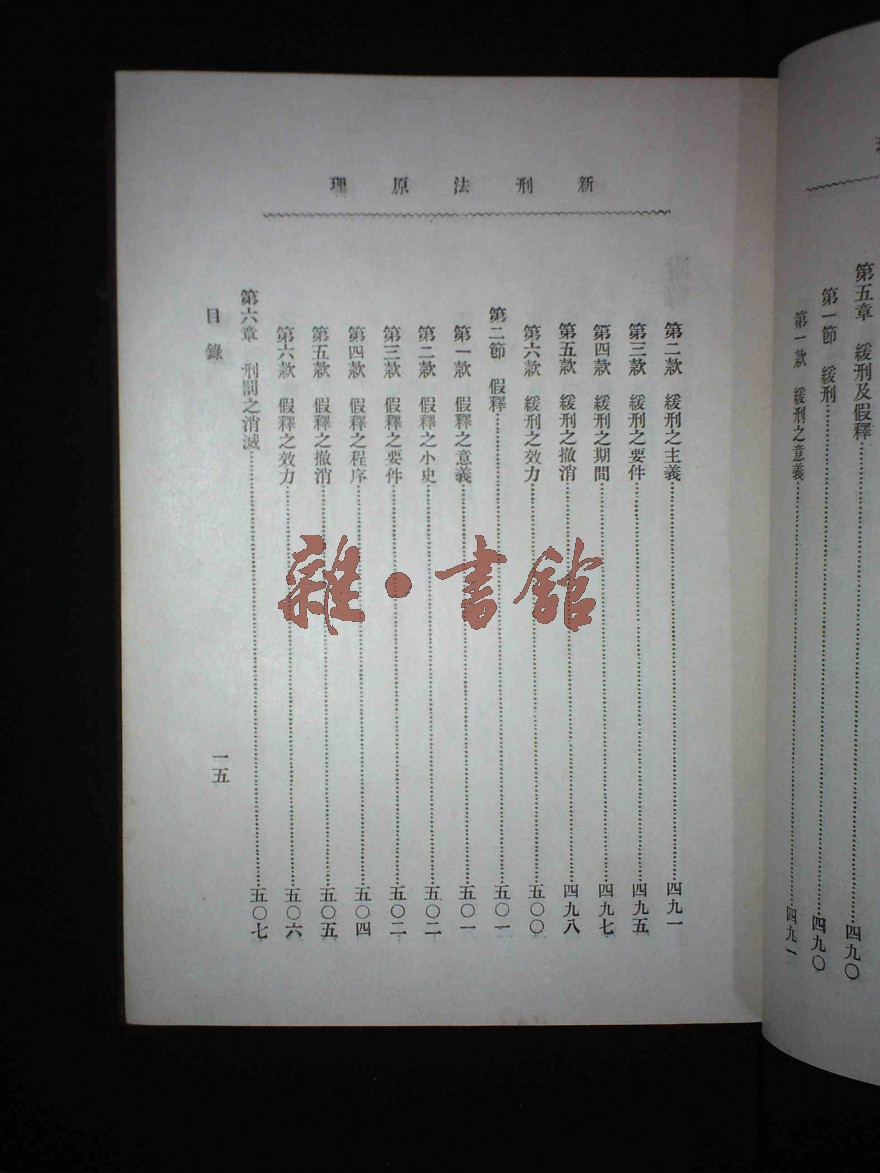 第五章　緩刑及假釋……四九〇
第一節　緩刑……四九〇
第一款　緩刑之意義……四九一
新刑法原理
第二款　緩刑之主義……四九一
第三款　緩刑之要件……四九五
第四款　緩刑之期間……四九七
第五款　緩刑之撤消……四九八
第六款　緩刑之效力……五〇〇
第二節　假釋……五〇一
第一款　假釋之意義……五〇一
第二款　假釋之小史……五〇二
第三款　假釋之要件……五〇二
第四款　假釋之程序……五〇四
第五款　假釋之撤消……五〇五
第六款　假釋之效力……五〇六
第六章　刑罰之消滅……五〇七
目錄
一五
雜·書館